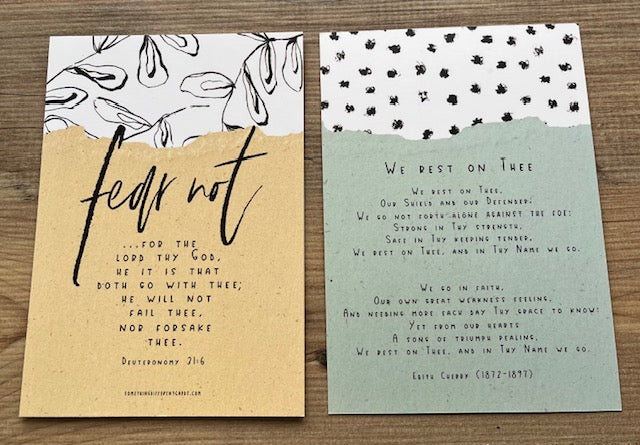 fear not
...FOR THE
LORD THY GOD,
HE IT IS THAT
DOTH GO WITH THEE;
HE WILL NOT
FAIL THEE,
NOR FORSAKE
THEE.
DEUTERONOMY 31:6
SOMETHINGDIFFERENTCARDS.COM
WE REST ON THEE
WE REST ON THEE,
OUR SHIELD AND OUR DEFENDER;
WE GO NOT FORTH ALONE AGAINST THE FOE:
STRONG IN THY STRENGTH,
SAFE IN THY KEEPING TENDER,
WE REST ON THEE, AND IN THY NAME WE GO.
WE GO IN FAITH,
OUR OWN GREAT WEAKNESS FEELING,
AND NEEDING MORE EACH DAY THY GRACE TO KNOW:
YET FROM OUR HEARTS
A SONG OF TRIUMPH PEALING,
WE REST ON THEE, AND IN THY NAME WE GO.
EDITH CHERRY (1872-1897)